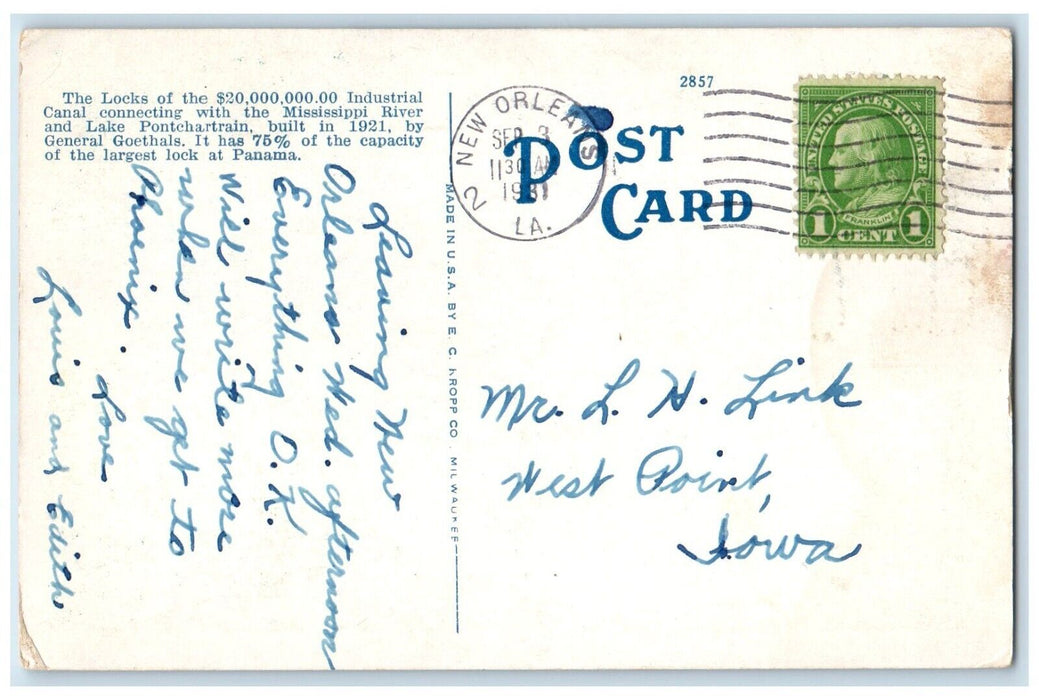 The Locks of the $20,000,000.00 Industrial
Canal connecting with the Mississippi River
and Lake Pontchartrain, built in 1921, by
General Goethals. It has 75% of the capacity
of the largest lock at Panama.
Leaving New
Orleans Wed. afternoon
Everything O.K.
Will write more
when we get to
Phoenix. Love
Louis and Edith
MADE IN U.S.A. BY E. C. KROPP CO. MILWAUKEE
2857
POST
CARD
NEW ORLEANS
SEP 3
1130 AM
1931
2
LA.
UNITED STATES POSTAGE
FRANKLIN
1 CENT 1
Mr. L. H. Link
West Point,
Iowa